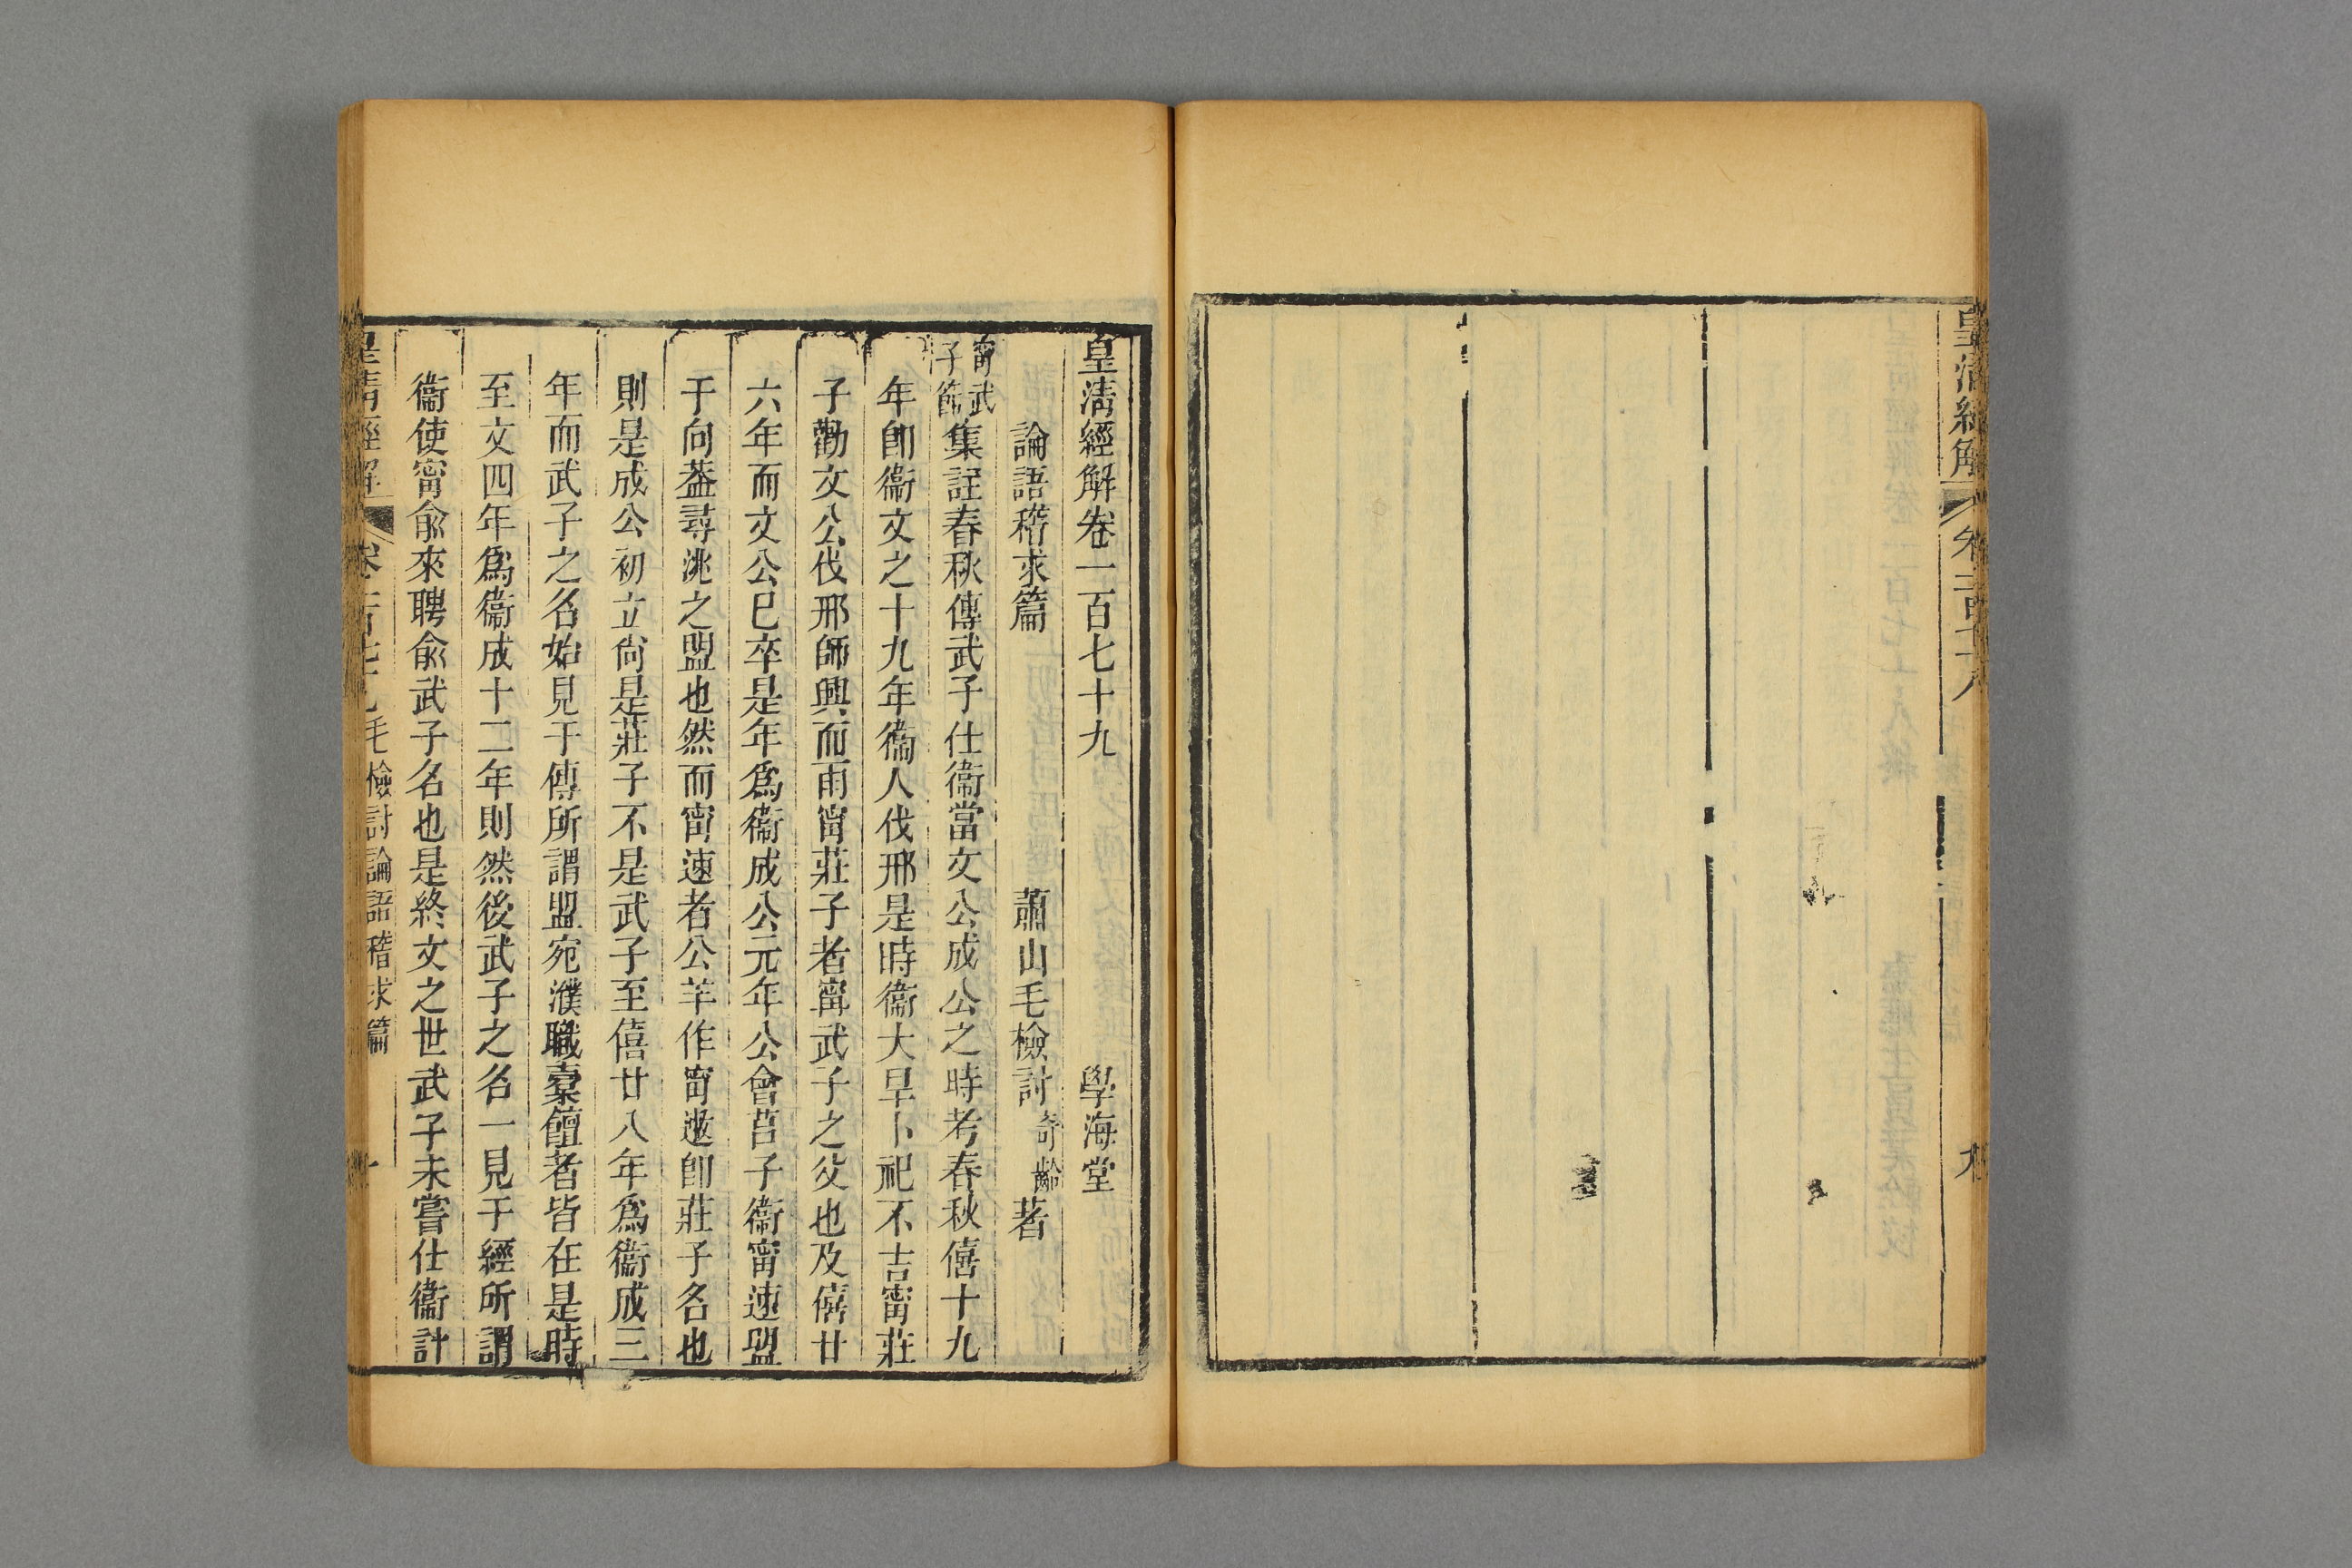 皇清經解 卷一百七十八 九
皇清經解卷一百七十九 學海堂
論語稽求篇 蕭山毛檢討奇齡著
甯武子節集註春秋傳武子仕衞當文公成公之時考春秋僖十九
年卽衞文之十九年衞人伐邢是時衞大旱卜祀不吉甯莊
子勸文公伐邢師興而雨甯莊子者甯武子之父也及僖廿
六年而文公已卒是年爲衞成公元年公會莒子衞甯速盟
于向葢尋洮之盟也然而甯速者公羊作甯遬卽莊子名也
則是成公初立尙是莊子不是武子至僖廿八年爲衞成三
年而武子之名始見于傳所謂盟宛濮職槖饘者皆在是時
至文四年爲衞成十二年則然後武子之名一見于經所謂
衞使甯俞來聘俞武子名也是終文之世武子未嘗仕衞計
皇清經解 卷一百七十九 毛檢討論語稽求篇 一